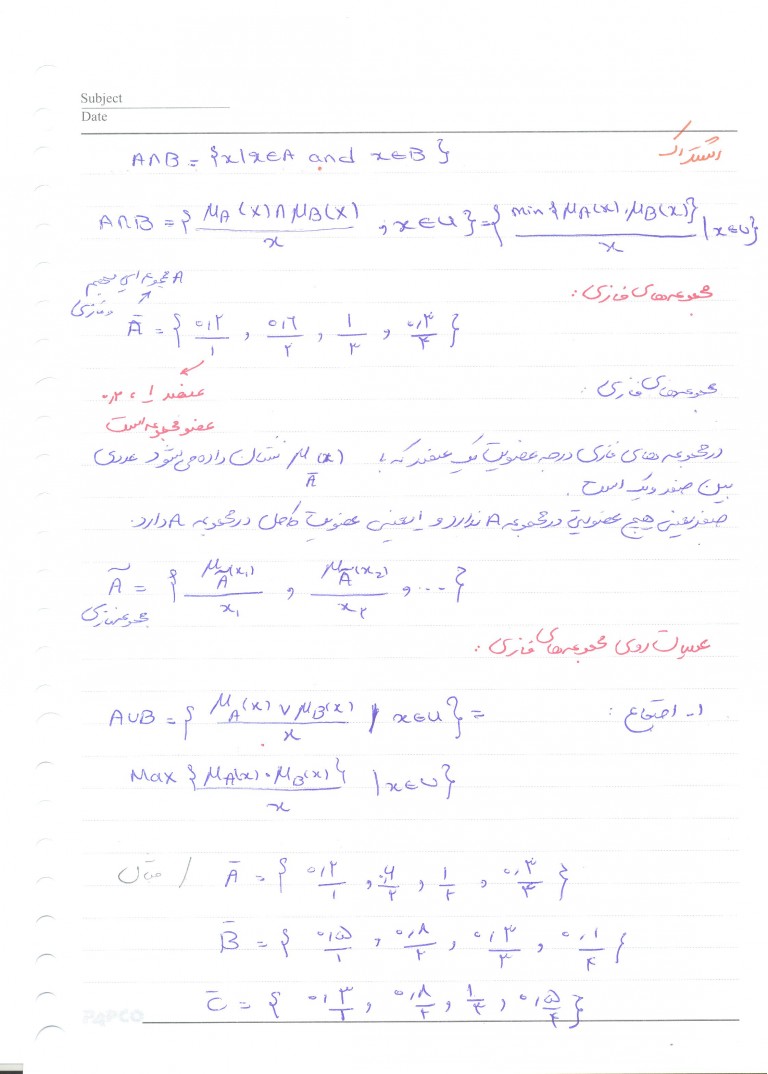 Subject
Date
اشتراک
A∩B = {x|x∈A and x∈B}
A∩B = { μA(x)∩μB(x) / x , x∈U } = { min{μA(x),μB(x)} / x | x∈U }
مجموعه های فازی:
A مجموعه ای مبهم
و فازی
Ā = { ۰,۲/۱ , ۰,۶/۲ , ۱/۳ , ۰,۳/۴ }
عنصر ۱ ، ۰,۲
عضو مجموعه است
مجموعه های فازی:
در مجموعه های فازی درجه عضویت یک عنصر که با μĀ(x) نشان داده می شود عددی
بین صفر و یک است.
صفر یعنی هیچ عضویتی در مجموعه A ندارد و ۱ یعنی عضویت کامل در مجموعه A دارد.
Ã = { μÃ(x₁) / x₁ , μÃ(x₂) / x₂ , ... }
مجموعه فازی
عملیات روی مجموعه های فازی:
۱- اجتماع:
A∪B = { μA(x) ∨ μB(x) / x | x∈U } =
Max { μA(x), μB(x) } / x | x∈U }
مثال /
Ā = { ۰,۲/۱ , ۰,۶/۲ , ۱/۳ , ۰,۳/۴ }
B̄ = { ۰,۵/۱ , ۰,۸/۲ , ۰,۳/۳ , ۰,۱/۴ }
C̄ = { ۰,۳/۱ , ۰,۸/۲ , ۱/۳ , ۰,۵/۴ }
PAPCO